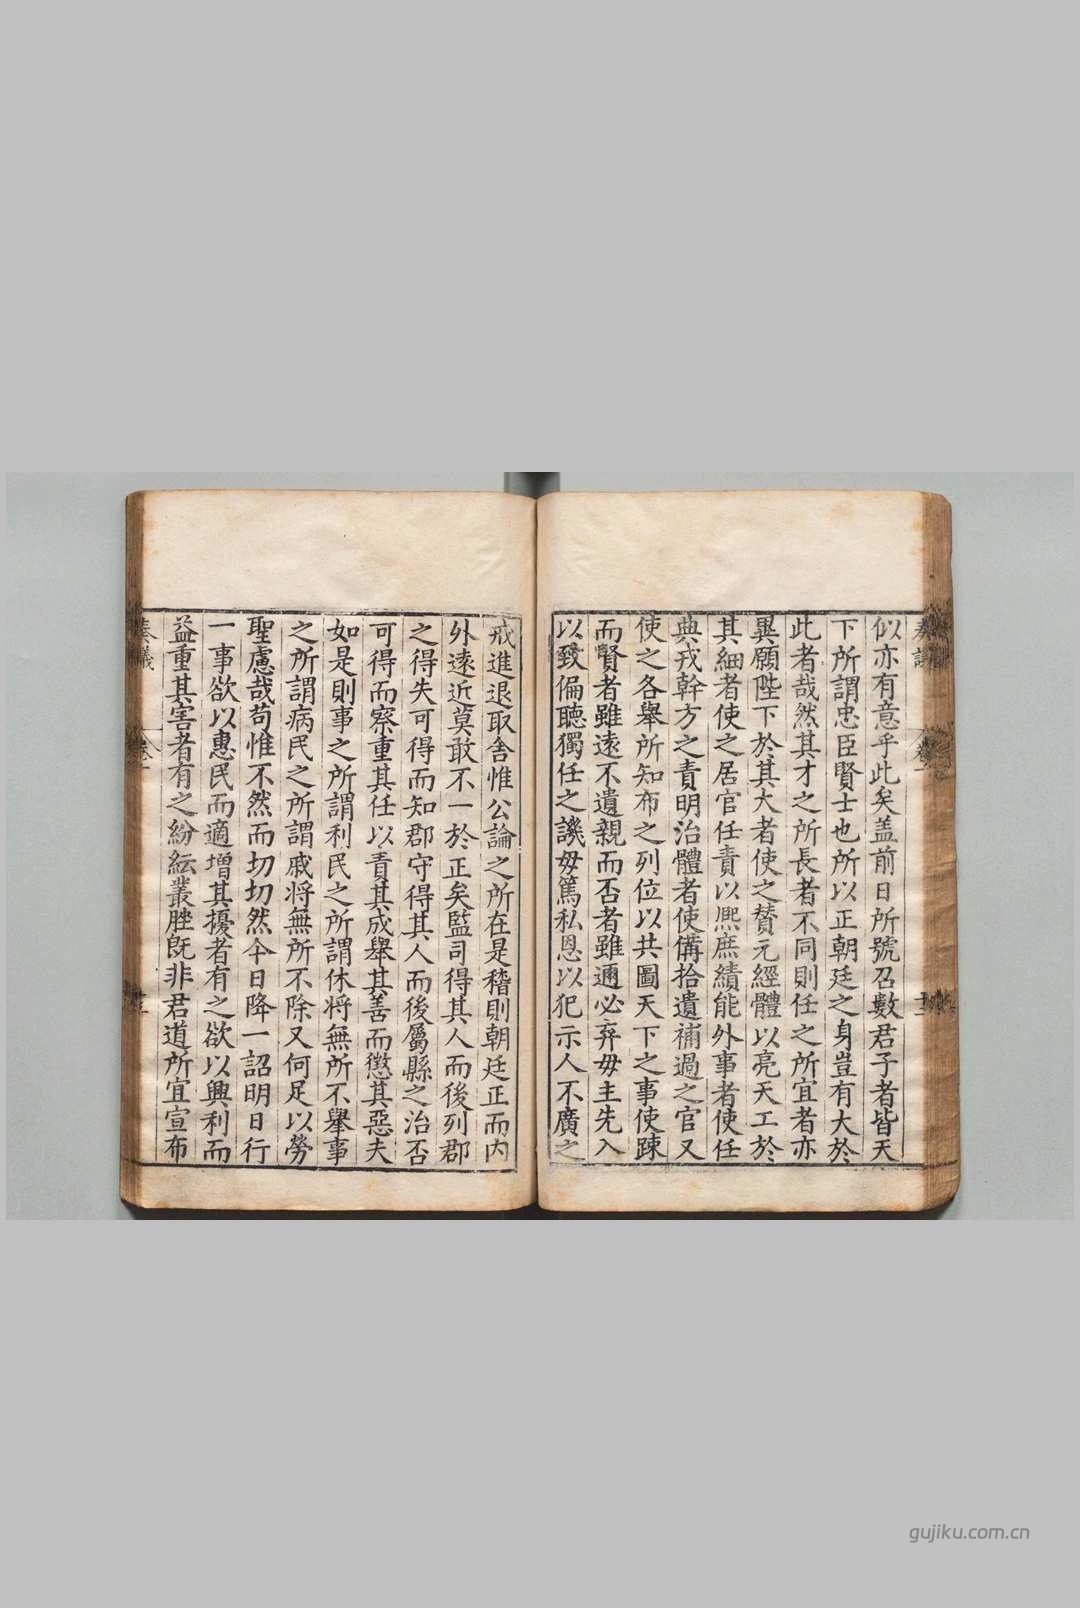 似亦有意乎此矣盖前日所號召數君子者皆天
下所謂忠臣賢士也所以正朝廷之身豈有大於
此者哉然其才之所長者不同則任之所宜者亦
異願陛下於其大者使之賛元經體以亮天工於
其細者使之居官任責以熈庶績能外事者使任
典戎幹方之責明治體者使備拾遺補過之官又
使之各舉所知布之列位以共圖天下之事使踈
而賢者雖遠不遺親而否者雖邇必弃毋主先入
以致偏聴獨任之譏毋篤私恩以犯示人不廣之
戒進退取舍惟公論之所在是稽則朝廷正而内
外遠近莫敢不一於正矣監司得其人而後列郡
之得失可得而知郡守得其人而後屬縣之治否
可得而察重其任以責其成舉其善而懲其惡夫
如是則事之所謂利民之所謂休将無所不舉事
之所謂病民之所謂戚将無所不除又何足以勞
聖慮哉苟惟不然而切切然今日降一詔明日行
一事欲以惠民而適增其擾者有之欲以興利而
益重其害者有之紛紜叢脞旣非君道所宜宣布
奏議
卷一
gujiku.com.cn